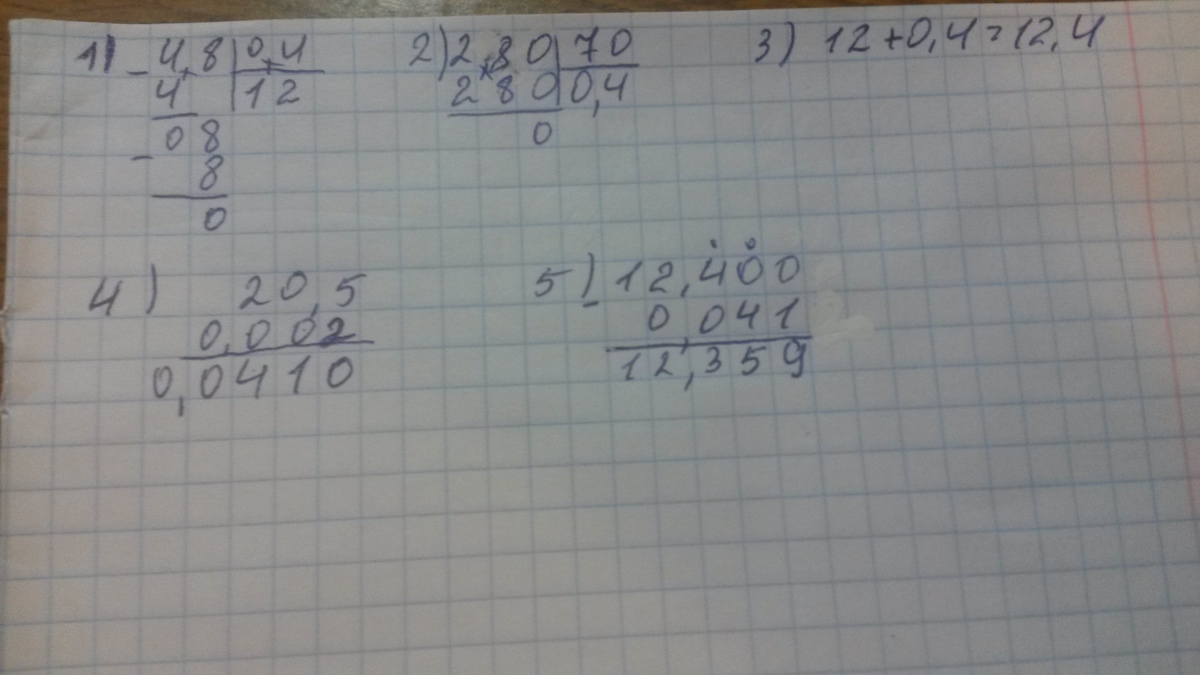 1) - 4,8 | 0,4 2) 2,80 | 70 3) 12+0,4=12,4
4 | 12 280 | 0,4
08 0
- 8
0
4) 20,5 5) - 12,400
0,002 0,041
0,0410 12,359